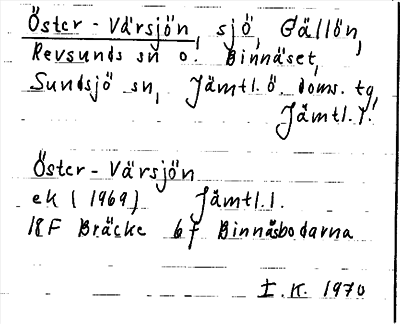 Öster-Värsjön, sjö, Gällön,
Revsunds sn o. Binnäset,
Sundsjö sn, Jämtl.ö. doms. tg,
Jämtl.l.
Öster-Värsjön
ek (1969) Jämtl.l.
18F Bräcke 6f Binnäsbodarna
I.K. 1970